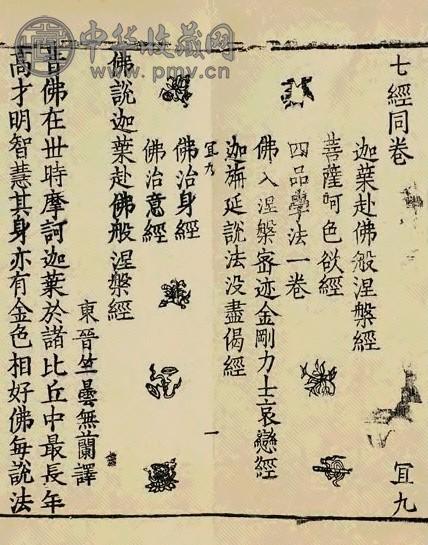 中华收藏网
www.pmv.cn
七經同卷 宜九
迦葉赴佛般涅槃經
菩薩呵色欲經
四品學法一卷
佛入涅槃密迹金剛力士哀戀經
迦旃延說法没盡偈經
宜九 一
佛治身經
佛治意經
佛說迦葉赴佛般涅槃經
東晉竺曇無蘭譯
昔佛在世時摩訶迦葉於諸比丘中最長年
高才明智慧其身亦有金色相好佛每說法